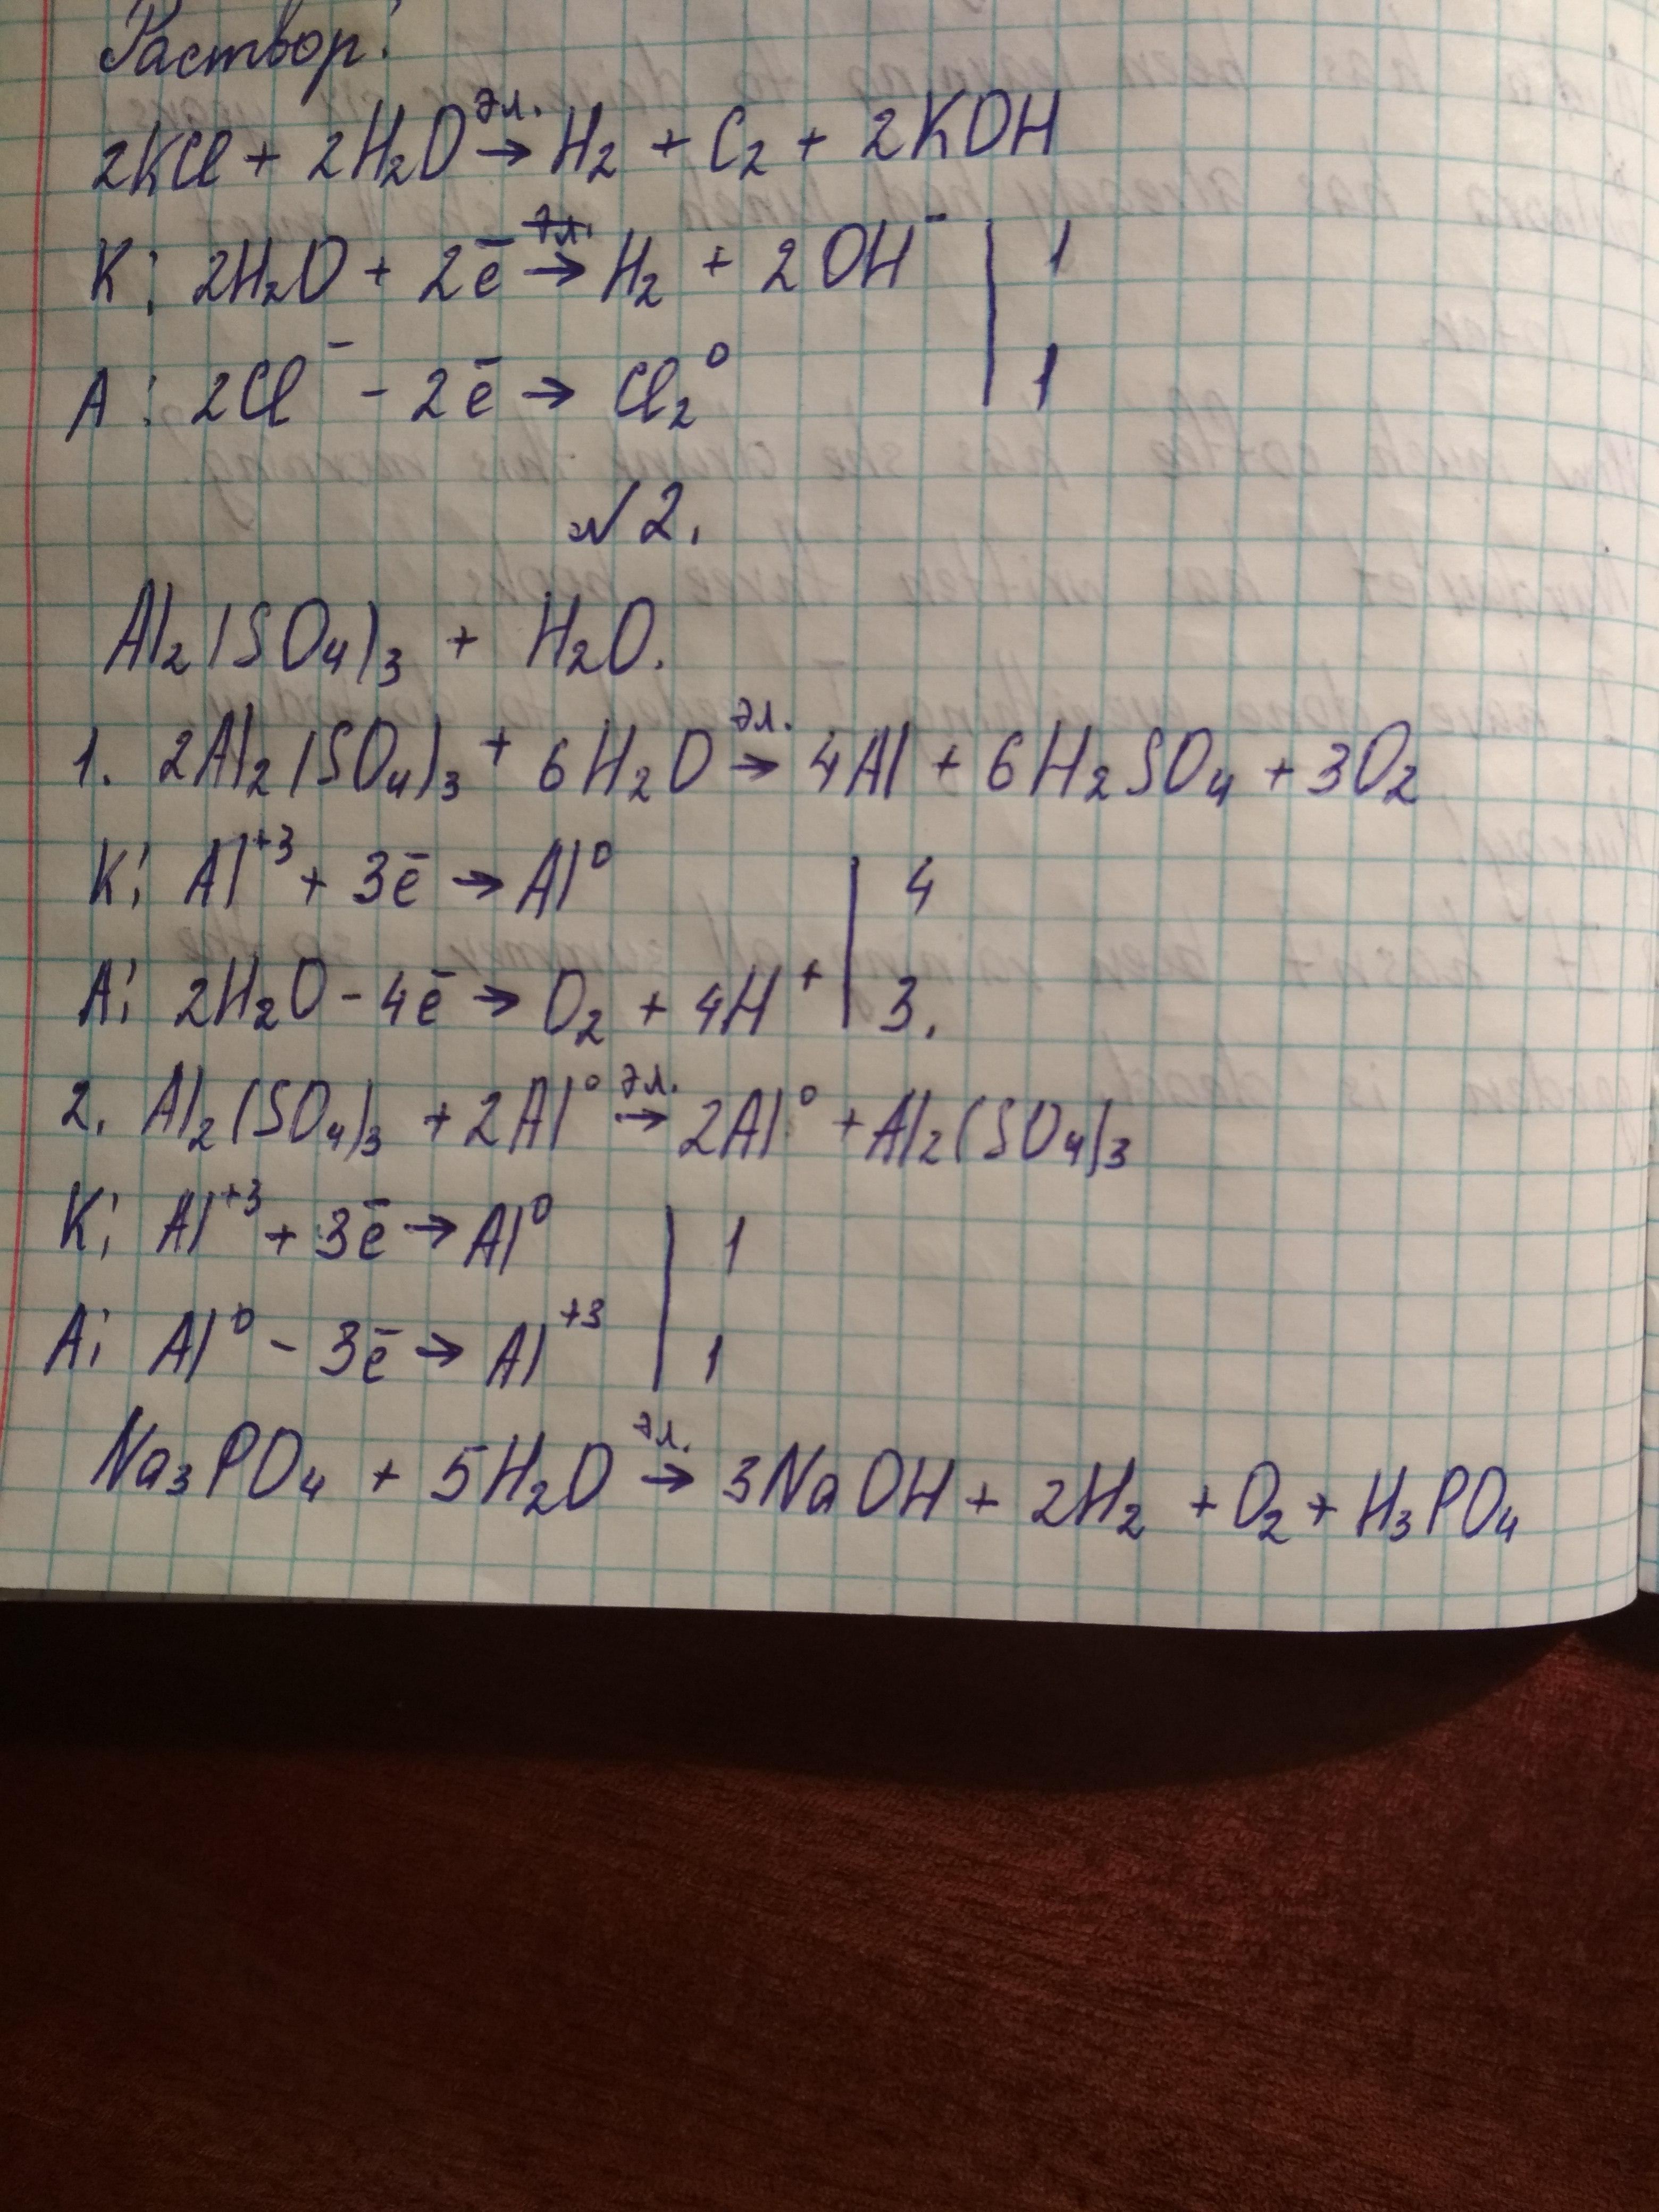 Раствор:
2KCl + 2H₂O эл.→ H₂ + C₂ + 2KOH
K: 2H₂O + 2ē → H₂ + 2OH⁻ | 1
A: 2Cl⁻ - 2ē → Cl₂⁰ | 1
№2.
Al₂(SO₄)₃ + H₂O.
1. 2Al₂(SO₄)₃ + 6H₂O эл.→ 4Al + 6H₂SO₄ + 3O₂
K: Al⁺³ + 3ē → Al⁰ | 4
A: 2H₂O - 4ē → O₂ + 4H⁺ | 3.
2. Al₂(SO₄)₃ + 2Al⁰ эл.→ 2Al⁰ + Al₂(SO₄)₃
K: Al⁺³ + 3ē → Al⁰ | 1
A: Al⁰ - 3ē → Al⁺³ | 1
Na₃PO₄ + 5H₂O эл.→ 3NaOH + 2H₂ + O₂ + H₃PO₄